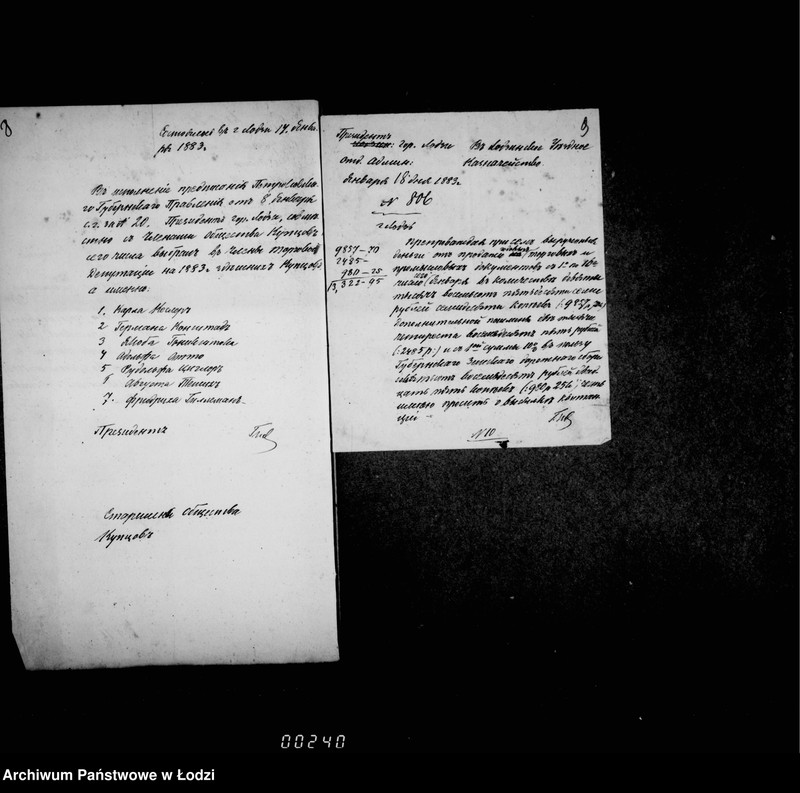 8
Состоялось въ г. Лодзи 17 Янва-
ря 1883 г.
Въ исполненіе предписанія Петроковска-
го Губернскаго Правленія отъ 8 Января
с. г. за № 20. Президентъ гор. Лодзи,
стно съ Членами общества Купцовъ
его числа выбралъ въ члены торговой
Депутаціи на 1883 г. Купцовъ
а именно:
1. Карла
2 Германа Конштадъ
3 Якова
4 Адольфа Отто
5 Рудольфа Циглеръ
6 Августа
7. Фридриха
Президентъ
Старшина Общества
Купцовъ
9
Президентъ
гор. Лодзи
Отд. Админ:
Января 18 дня 1883 г.
№ 806
г. Лодзь
Въ Лодзинское Уѣздное
Казначейство
9857-70
2485-
980-25
13,322-95
Препровождая при семъ вырученныя
деньги отъ продажи торговыхъ и
промысловыхъ документовъ съ 1 по
Января въ количествѣ девяти
тысячъ восемьсотъ пятьдесятъ семи
рублей семидесяти копѣекъ (: 9857 р. 70
дополнительной пошлины двѣ тысячи
четыреста восемьдесятъ пять рублей
(: 2485 р:) и съ сумма 10% въ пользу
Губернскаго Земскаго сбора
девятьсотъ восемьдесятъ рублей двад-
цать пять копѣекъ (: 980 р. 25 к:), честь
имѣю просить о высылкѣ квитан-
цій
№ 10
00240
Archiwum Państwowe w Łodzi